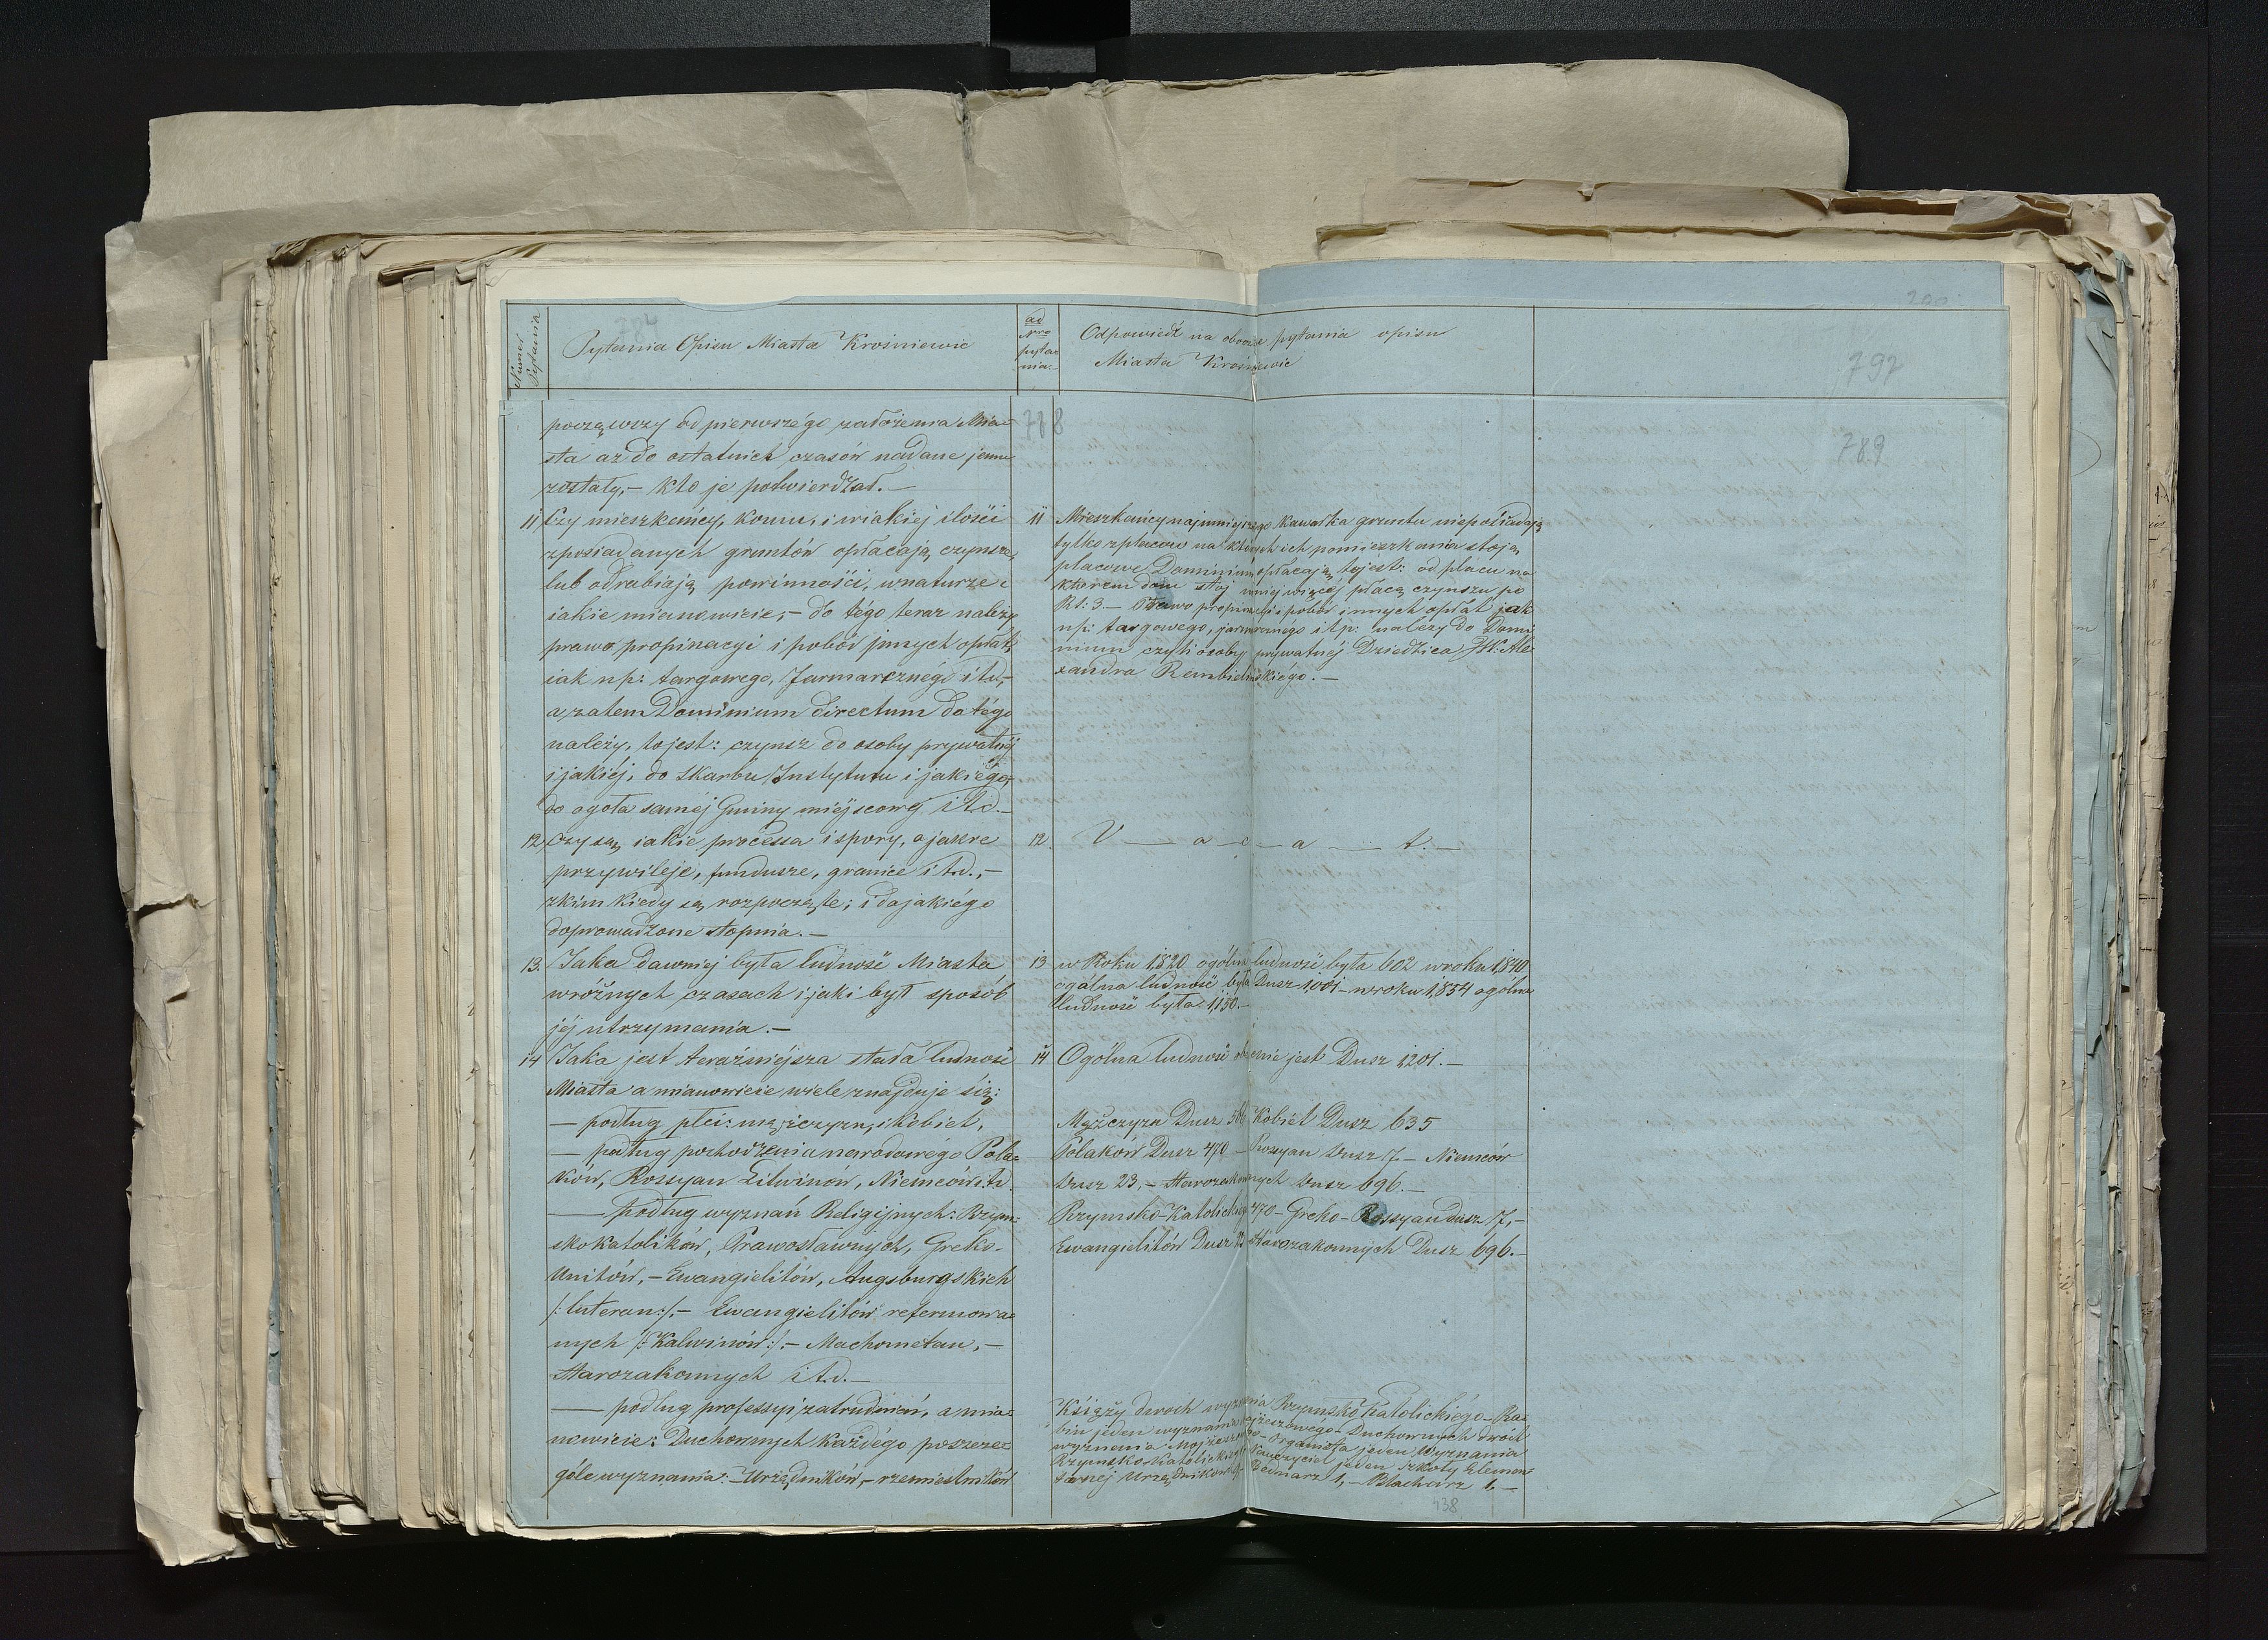 Numer Pytania
Pytania Opisu Miasta Krośniewic
ad Nro pytania.
Odpowiedź na obocze pytania opisu
Miasta Krośniewic
784
797
począwszy od pierwszégo założenia Mia=
sta aż do ostatnich czasów nadane jemu
zostały, – kto je potwierdzał. –
788
789
11 Czy mieszkańcy, komu, i wiakiej ilości
zposiadanych gruntów opłacają czynsze,
lub odrabiają powinności, wnaturze i
iakie mianowicie, – do tégo teraz należy
prawo propinacyi i pobór jnnych opłat,
iak np: targowego, Jarmarcznégo itd, –
a zatem Dominium directum do tégo
należy, tojest: czynsz do osoby prywatnéj
ijakiéj, do Skarbu Jnstytutu i jakiégo,
do ogoła saméj Gminy miejscowéj itd. –
11 Mieszkańcy najmniejszego kawałka gruntu nieposiadają
tylko zplaców na których ich pomieszkania stoją
placowe Dominium opłacają tojest: od placu na
którem dom stoj mniej więcéj płacą czynszu po
Rs: 3. – Prawo propinacyi i pobór innych opłat jak
np: targowego, jarmarcznégo itp: należy do Domi
nium czyli osoby prywatnéj Dziedzica JW. Ale
xandra Rembielińskiégo. –
12, Czy są, iakie processa i spory, o jakie
przywileje, fundusze, granice itd., –
zkim kiedy są rozpoczęte; i do jakiégo
doprowadzone stopnia. –
12. V — a — c — a — t. —
13. Jaka dawniej była ludność Miasta
wróżnych czasach i jaki był sposób
jéj utrzymania. –
13 w Roku 1820 ogólna ludność była 602 wroku 1,840
ogólna ludność była Dusz 1,001 – wroku 1,854 ogólna
ludność była 1,150. –
14 Jaka jest teraźniéjsza stała ludność
Miasta a mianowicie wiele znajduje się:
– podług płci: mężczyzn, i Kobiet,
– podług pochodzenia narodowégo Pola=
ków, Rossyan Litwinów, Niemców itd.
— podług wyznań Religijnych: Rzym=
skokatolików, Prawosławnych, Greko-
Unitów, – Ewangielitów, Augsburgskich
/: luteran :/. – Ewangielitów reformowa=
nych /: Kalwinów :/. – Machometan, –
Starozakonnych itd. –
— podług professyi, zatrudnień, a mia=
nowicie: Duchownych każdégo poszcze=
góle wyznania: – Urzędników, – rzemieslników
14 Ogólna ludność obecnie jest Dusz 1,201. –
Mężczyzn Dusz 566 Kobiet Dusz 635
Polaków Dusz 470 – Rossyan Dusz 17 – Niemców
Dusz 23, – Starozakonnych Dusz 696. –
Rzymsko-Katolickiego 470 – Greko-Rossyan dusz 17, –
Ewangielitów Dusz Starozakonnych Dusz 696. –
Księży dwóch wyznania Rzymsko Katolickiégo – Ra=
bin jeden wyznania mojżeszowégo – Duchownych dwóch
wyznania Mojżeszowégo – organista jeden wyznania
Rzymsko-Katolickiégo Nauczyciel jeden szkoły Elemen
tarnej Urzędników – Bednarz 1, – Blacharz 1, –
438